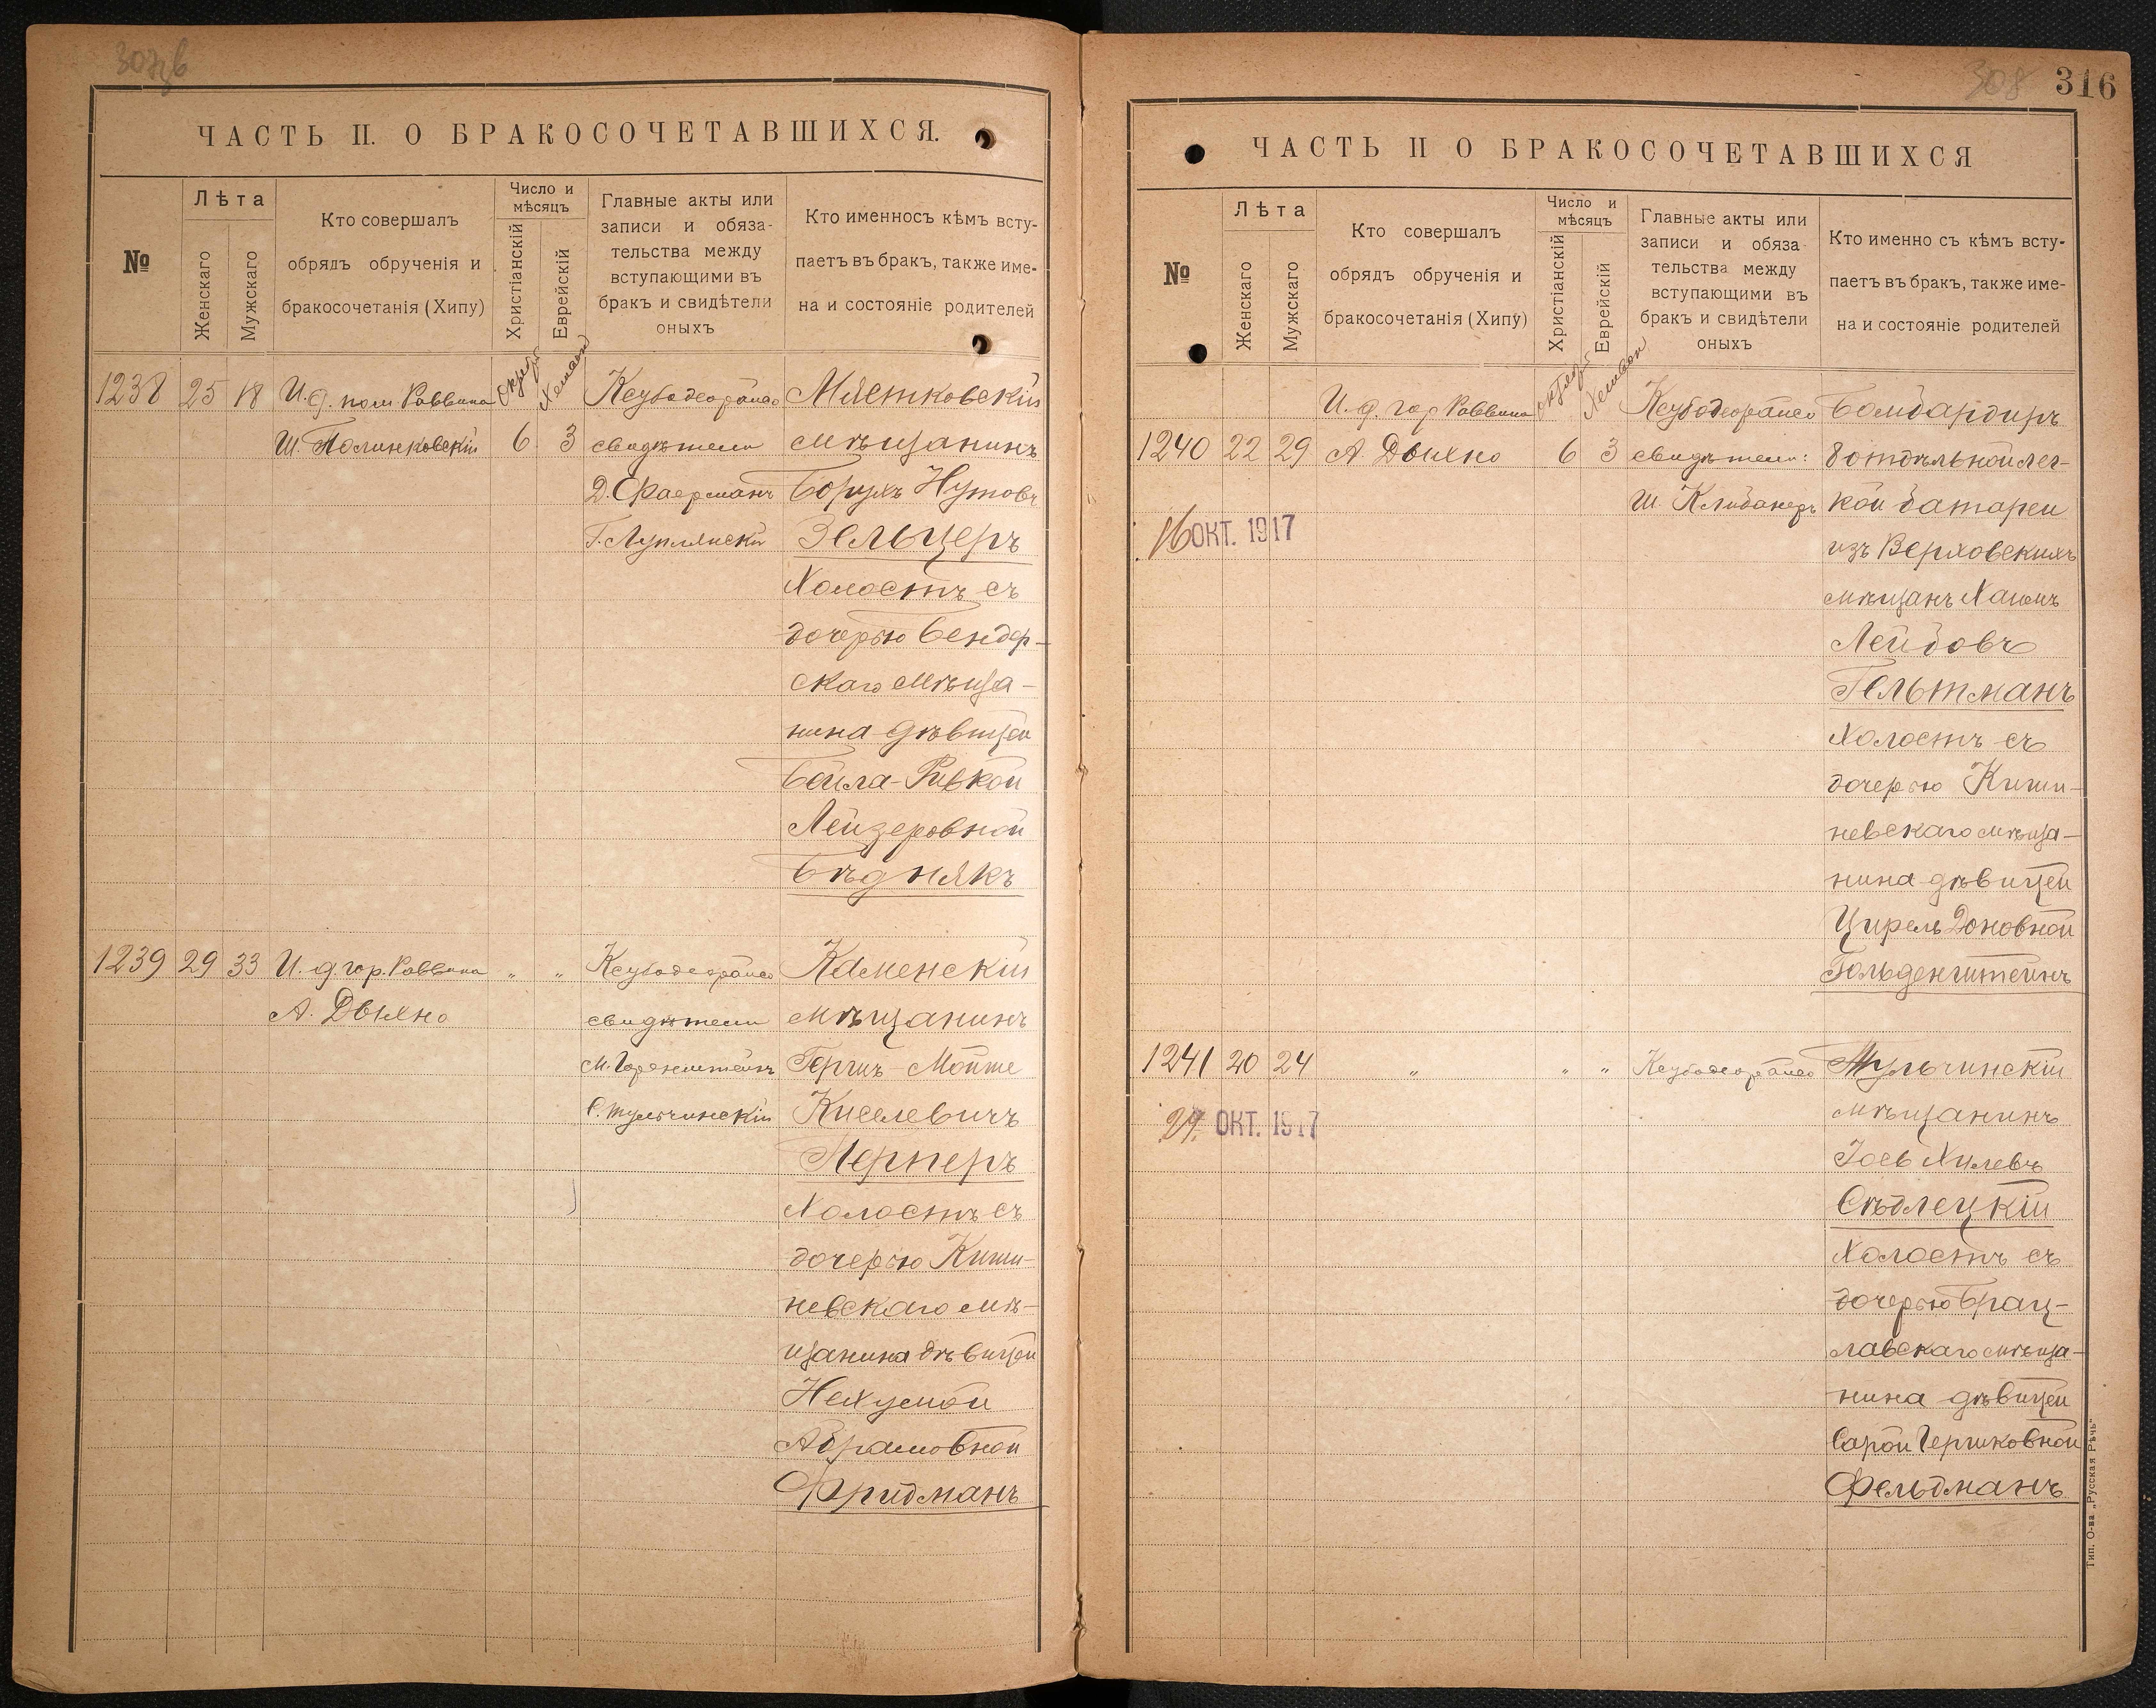 307 в
ЧАСТЬ II. О БРАКОСОЧЕТАВШИХСЯ.
№
Лѣта
Женскаго
Мужскаго
Кто совершалъ
обрядъ обрученія и
бракосочетанія (Хипу)
Число и
мѣсяцъ
Христіанскій
Еврейскій
Главные акты или
записи и обяза-
тельства между
вступающими въ
бракъ и свидѣтели
оныхъ
Кто именносъ кѣмъ всту-
паетъ въ бракъ, также име-
на и состояніе родителей
1238 25 18 И. д. пом Раввина
Ш. Полинковскій
6 3
свидѣтели
Г. Луплянскій
мѣщанинъ
Борухъ Нутовъ
Зельцеръ
Холостъ съ
дочерью Бендер-
скаго мѣща-
нина дѣвицей
Бейла-Ривкой
Лейзеровной
Бѣднякъ
1239 29 33 И. д. гор. Раввина „ „
А. Дыхно
свидѣтели
М. Горенштейнъ
С. Тульчинскій
Каменскій
мѣщанинъ
Гершъ-Мойше
Киселевичъ
Лернеръ
Холостъ съ
дочерью Киши-
невскаго мѣ-
щанина дѣвицей
Нехумой
Абрамовной
Фридманъ
308 316
ЧАСТЬ II О БРАКОСОЧЕТАВШИХСЯ
№
Лѣта
Женскаго
Мужскаго
Кто совершалъ
обрядъ обрученія и
бракосочетанія (Хипу)
Число и
мѣсяцъ
Христіанскій
Еврейскій
Главные акты или
записи и обяза
тельства между
вступающими въ
бракъ и свидѣтели
оныхъ
Кто именно съ кѣмъ всту-
паетъ въ бракъ, также име-
на и состояніе родителей
И. д. гор Раввина
1240 22 29 А. Дыхно 6 3
свидѣтели:
Ш. Клибанеръ
16 ОКТ. 1917
Бомбардиръ
8 отдѣльной лег-
кой батареи
изъ Верховскихъ
мѣщанъ Хаимъ
Лейбовъ
Гельтманъ
Холостъ съ
дочерью Киши-
невскаго мѣща-
нина дѣвицей
Цирель Доновной
Гольденштейнъ
1241 20 24 „ „ „
29 ОКТ. 1917
Тульчинскій
мѣщанинъ
Іось Хилевъ
Сѣдлецкій
Холостъ съ
дочерью Брац-
лавскаго мѣща-
нина дѣвицей
Сарой Гершковной
Фельдманъ
Тип. О-ва „Русская Рѣчь"